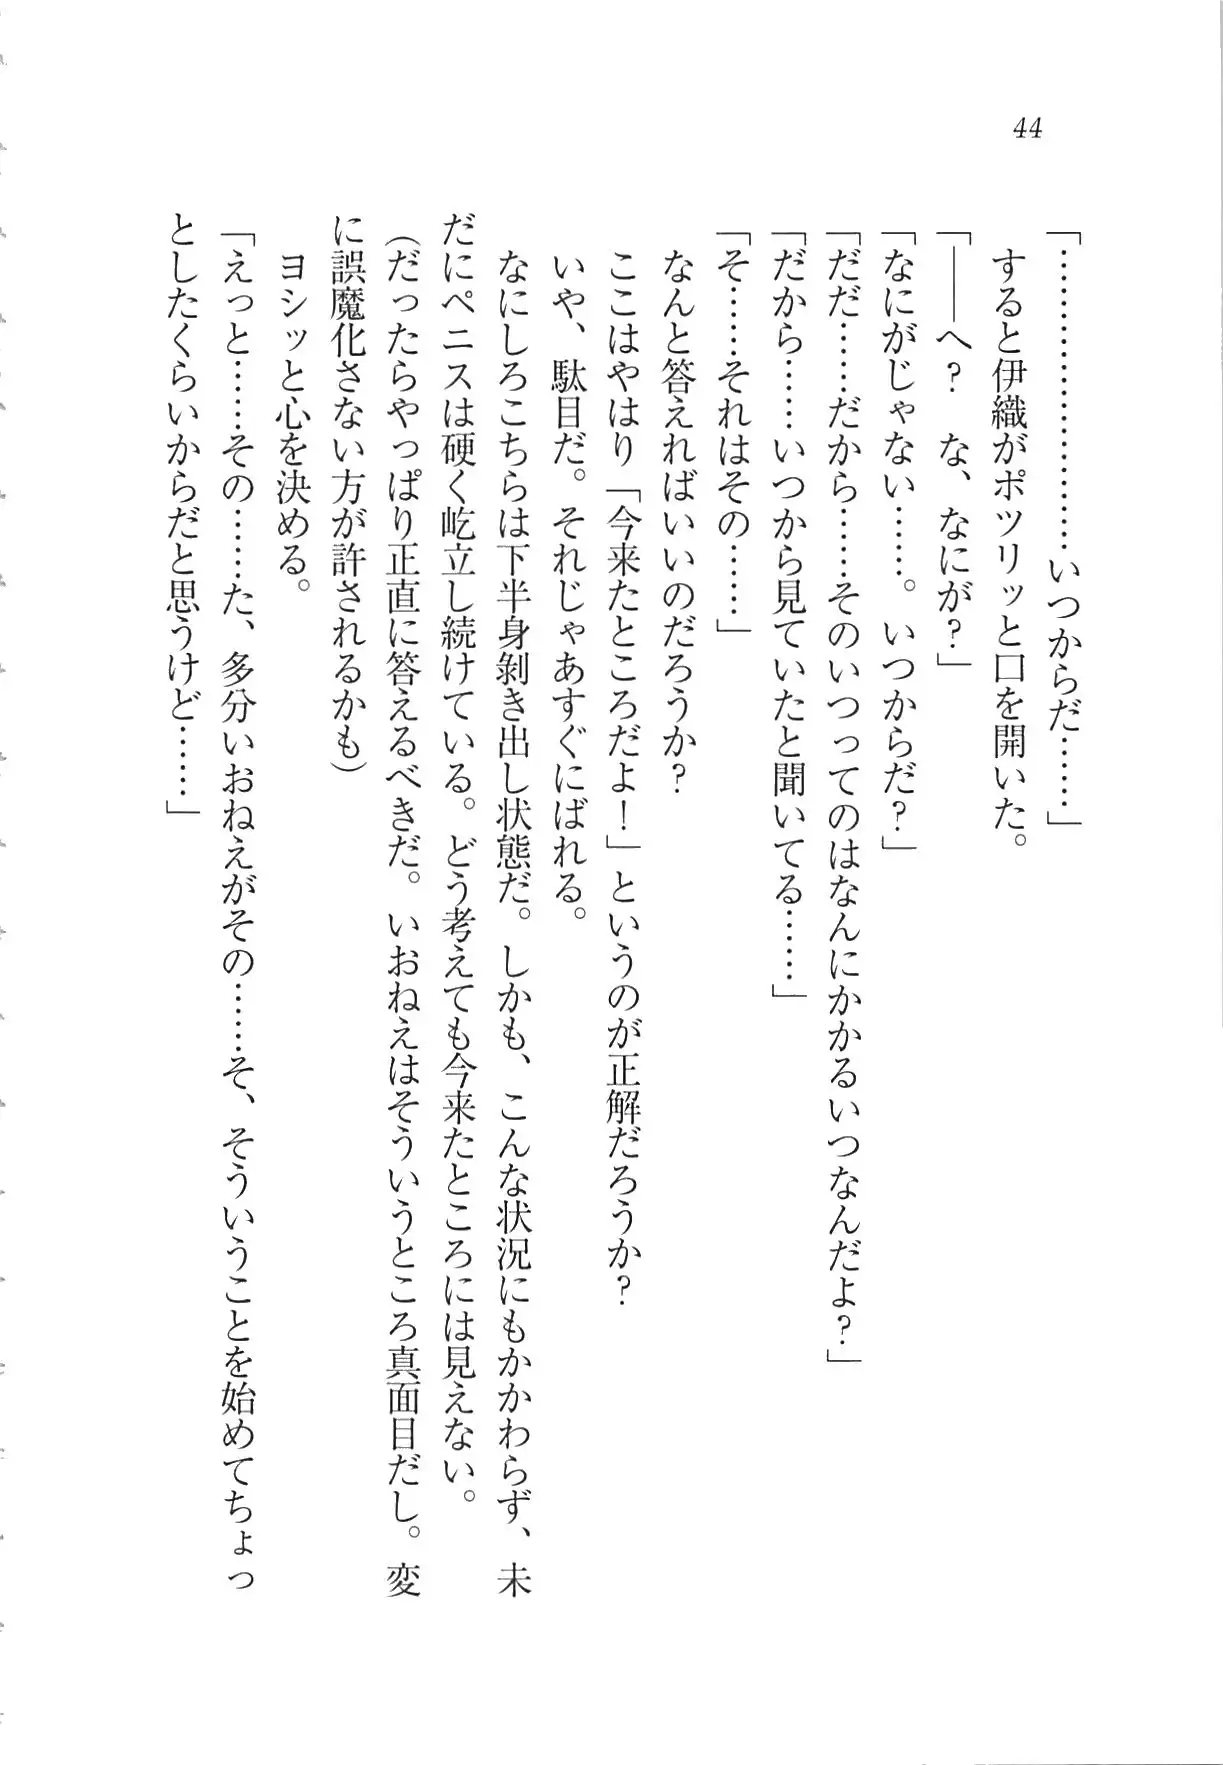 44
「……………………いつからだ……」
すると伊織がポツリッと口を開いた。
「――へ？　な、なにが？」
「なにがじゃない……。いつからだ？」
「だだ……だから……そのいつってのはなんにかかるいつなんだよ？」
「だから……いつから見ていたと聞いてる……」
「そ……それはその……」
なんと答えればいいのだろうか？
ここはやはり「今来たところだよ！」というのが正解だろうか？
いや、駄目だ。それじゃあすぐにばれる。
なにしろこちらは下半身剝き出し状態だ。しかも、こんな状況にもかかわらず、未
だにペニスは硬く屹立し続けている。どう考えても今来たところには見えない。
（だったらやっぱり正直に答えるべきだ。いおねえはそういうところ真面目だし。変
に誤魔化さない方が許されるかも）
ヨシッと心を決める。
「えっと……その……た、多分いおねえがその……そ、そういうことを始めてちょっ
としたくらいからだと思うけど……」